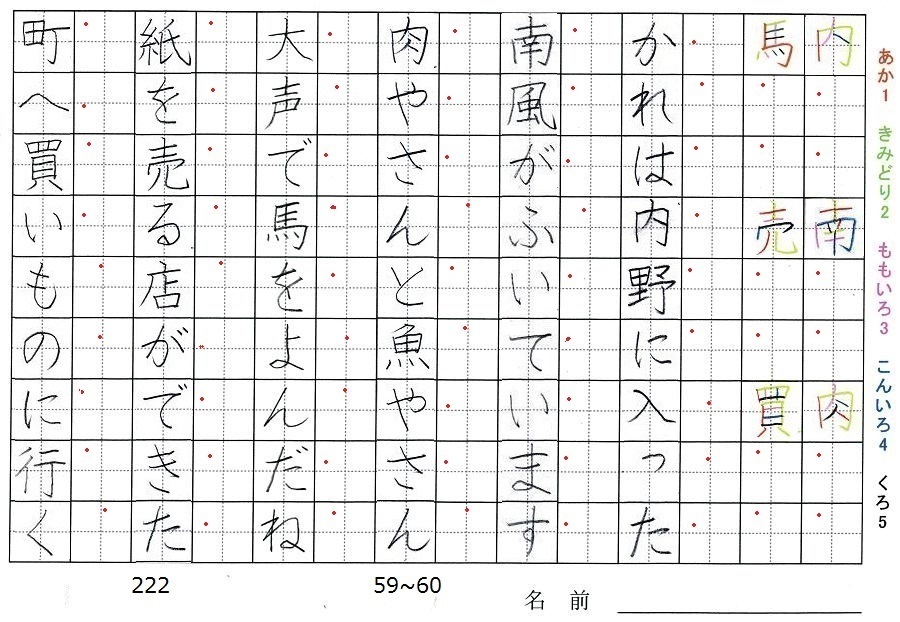 内南肉
馬売買
かれは内野に入った
南風がふいています
肉やさんと魚やさん
大声で馬をよんだね
紙を売る店ができた
町へ買いものに行く
あか1 きみどり2 ももいろ3 こんいろ4 くろ5
222
59~60
名前